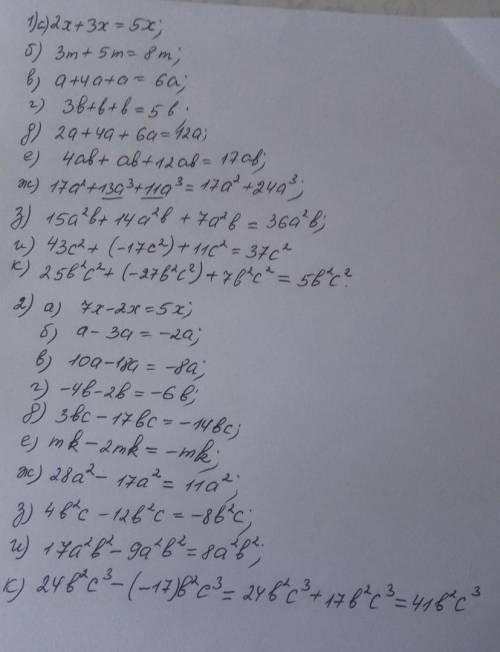 1)а) 2x+3x=5x;
б) 3m+5m=8m;
в) a+4a+a=6a;
г) 3в+в+в=5в.
д) 2a+4a+6a=12a;
е) 4aв+aв+12aв=17aв;
ж) 17a²+13a³+11a³=17a²+24a³;
з) 15a²в+14a²в+7a²в=36a²в;
и) 43c²+(-17c²)+11c²=37c²
к) 25в²c²+(-27в²c²)+7в²c²=5в²c².
2) а) 7x-2x=5x;
б) a-3a=-2a;
в) 10a-18a=-8a;
г) -4в-2в=-6в;
д) 3вc-17вc=-14вc;
е) mk-2mk=-mk;
ж) 28a²-17a²=11a²;
з) 4в²c-12в²c=-8в²c;
и) 17a²в²-9a²в²=8a²в²;
к) 24в²c³-(-17)в²c³=24в²c³+17в²c³=41в²c³